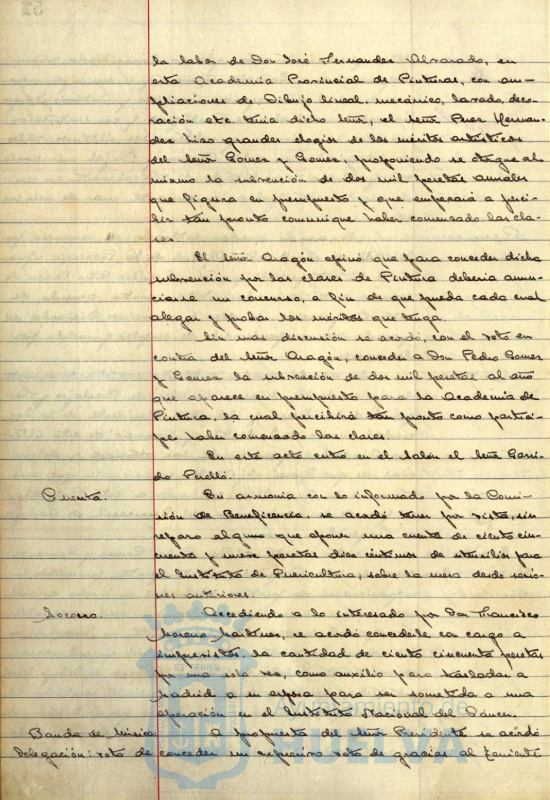 la labor de Don José Fernandez Alvarado, en
esta Academia Provincial de Pinturas, con am-
pliaciones de Dibujo lineal, mecánico, lavado, deco-
ración etc. tenia dicho Señor, el Señor Perez Hernan-
dez hizo grandes elogios de los méritos artísticos
del Señor Gomez y Gomez, proponiendo se otorgue al
mismo la subvención de dos mil pesetas anuales
que figura en presupuesto y que empezará a perci-
bir tan pronto comunique haber comenzado las cla-
ses.
El Señor Aragón opinó que para conceder dicha
subvención por las clases de Pintura deberia anun-
ciarse un concurso, a fin de que pueda cada cual
alegar y probar los méritos que tenga.
Sin mas discusión se acordó, con el voto en
contra del Señor Aragón, conceder a Don Pedro Gomez
y Gomez la subvención de dos mil pesetas al año
que aparece en presupuesto para la Academia de
Pintura, la cual percibirá tan pronto como partici-
pe haber comenzado las clases.
En este acto entra en el Salón el Señor Garri-
do Perelló.
Cuenta. En armonia con lo informado por la Comi-
sión de Beneficencia, se acordó tener por vista, sin
reparo alguno que oponer una cuenta de ciento cin-
cuenta y nueve pesetas diez céntimos de utensilios para
el Instituto de Puericultura, sobre la mesa desde sesio-
nes anteriores.
Socorro. Accediendo a lo interesado por Don Francisco
Moreno Martinez, se acordó concederle con cargo a
imprevistos, la cantidad de ciento cincuenta pesetas
por una sola vez, como auxilio para trasladar a
Madrid a su esposa para ser sometida a una
operación en el Instituto Nacional del Cáncer.
Banda de Música: A propuesta del Señor Presidente se acordó
Delegación: voto de conceder un expresivo voto de gracias al Teniente
Ayuntamiento de
HUELVA